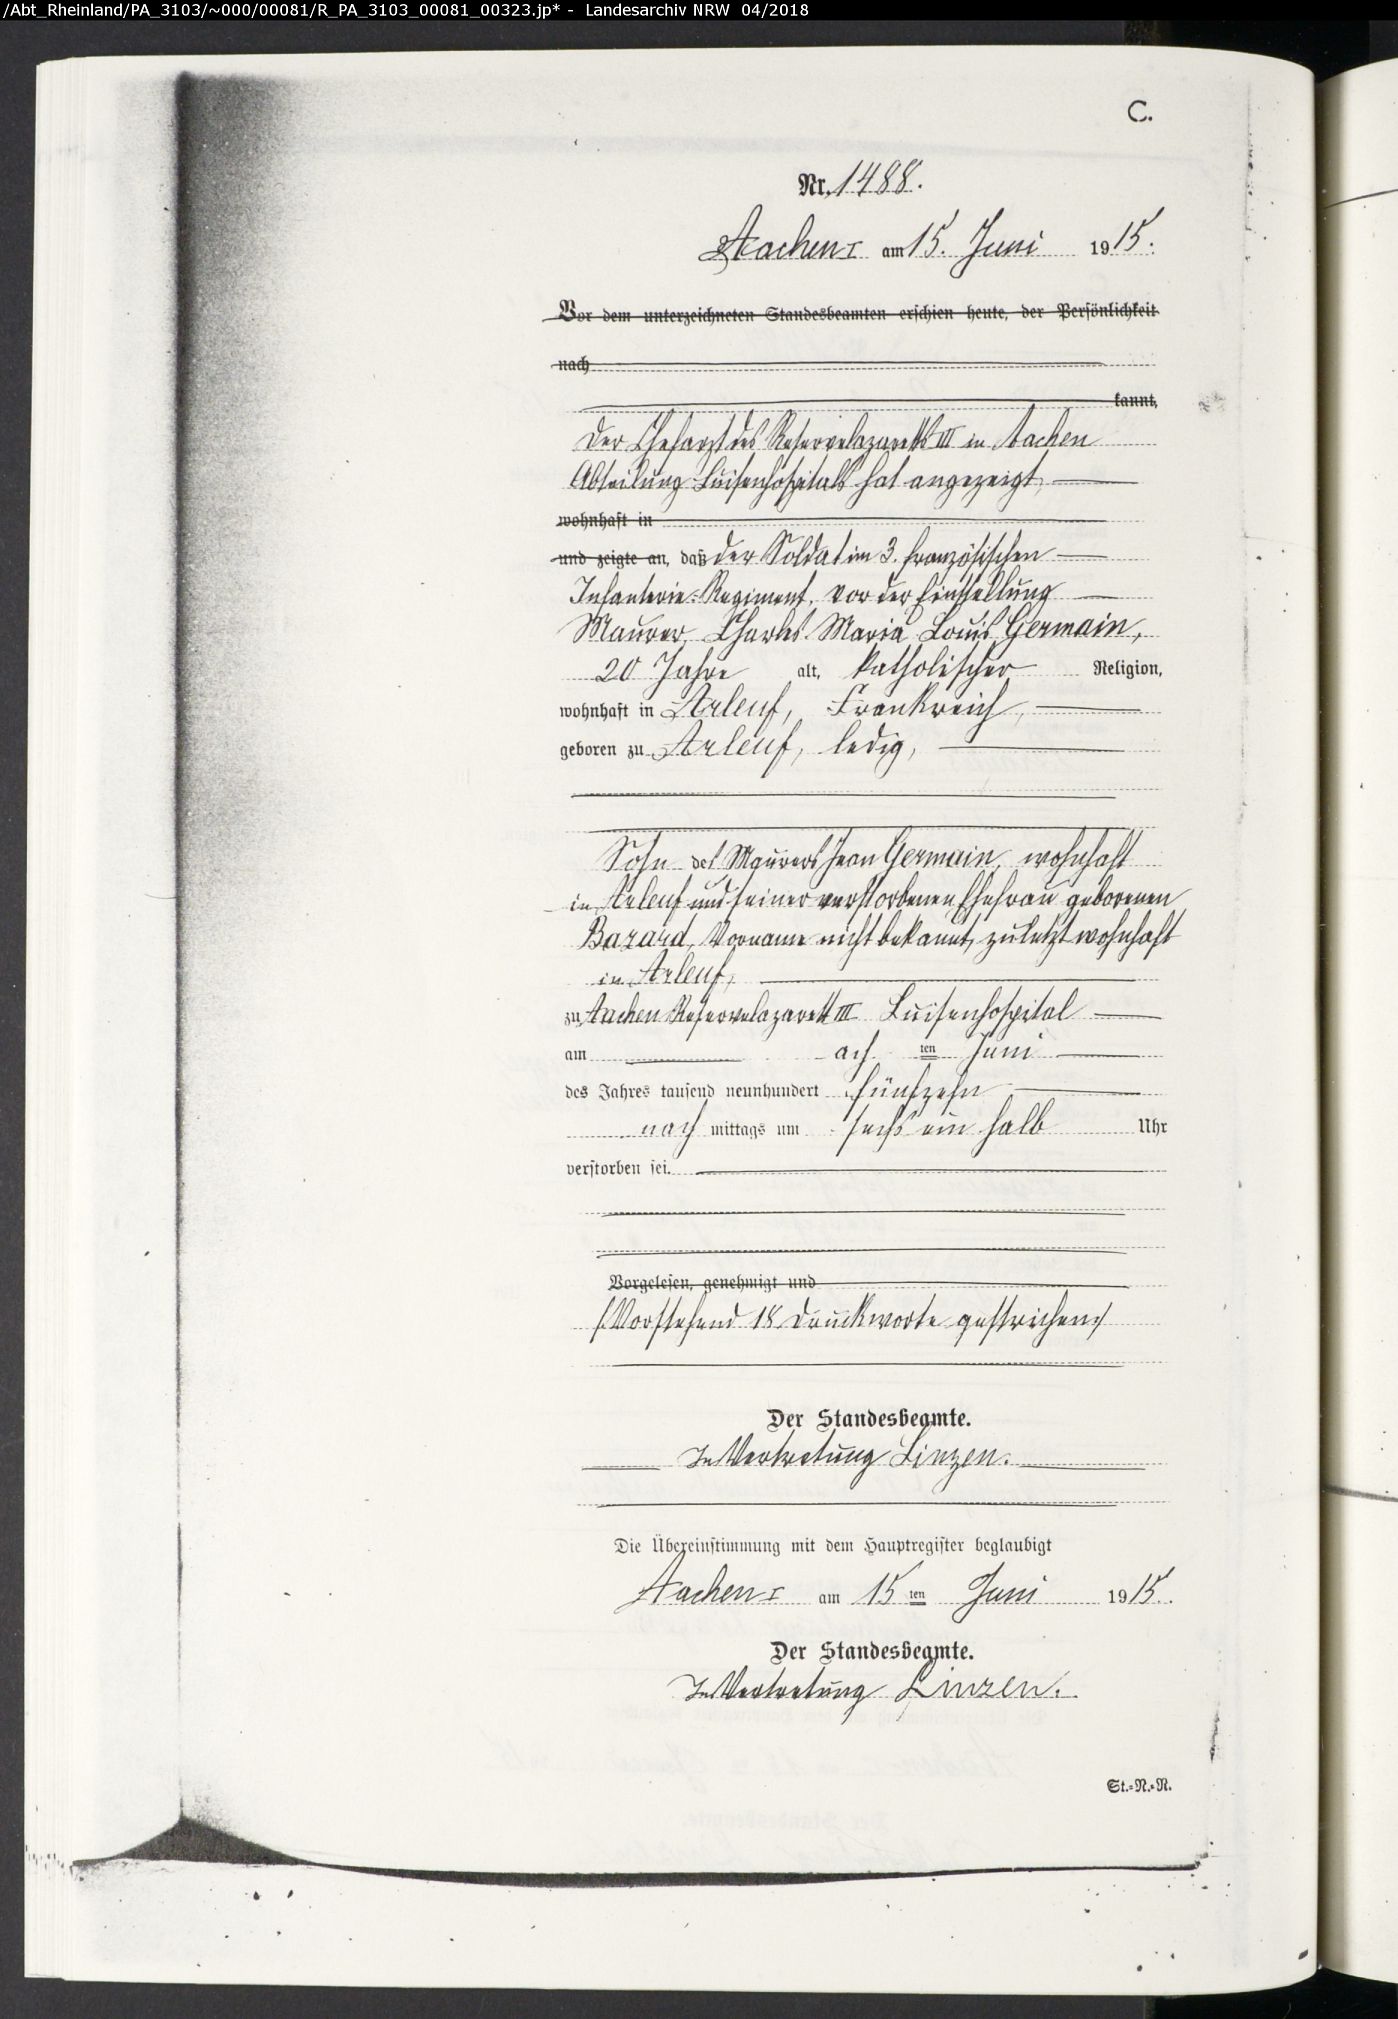 /Abt_Rheinland/PA_3103/~000/00081/R_PA_3103_00081_00323.jp* - Landesarchiv NRW 04/2018
C.
Nr. 1488.
Aachen I am 15. Juni 1915.
Vor dem unterzeichneten Standesbeamten erschien heute, der Persönlichkeit
nach
kannt,
Der Chefarzt des Reservelazaretts III in Aachen
Abteilung Luisenhospitals hat angezeigt,
wohnhaft in
und zeigte an, daß der Soldat im 3. französischen
Infanterie-Regiment, vor der Einstellung
Maurer, Charles Maria Louis Germain,
20 Jahre alt, katholischer Religion,
wohnhaft in Arleuf, Frankreich,
geboren zu Arleuf, ledig,
Sohn des Maurers Jean Germain, wohnhaft
in Arleuf und seiner verstorbenen Ehefrau geborenen
Bazard, Vorname nicht bekannt, zuletzt wohnhaft
in Arleuf,
zu Aachen Reservelazarett III Luisenhospital
am ach ten Juni
des Jahres tausend neunhundert fünfzehn
nach mittags um sechs ein halb Uhr
verstorben sei.
Vorgelesen, genehmigt und
/:Vorstehend 18 Druckworte gestrichen:/
Der Standesbeamte.
In Vertretung Linzen.
Die Übereinstimmung mit dem Hauptregister beglaubigt
Aachen I am 15 ten Juni 1915.
Der Standesbeamte.
In Vertretung Linzen.
St.=N.=N.